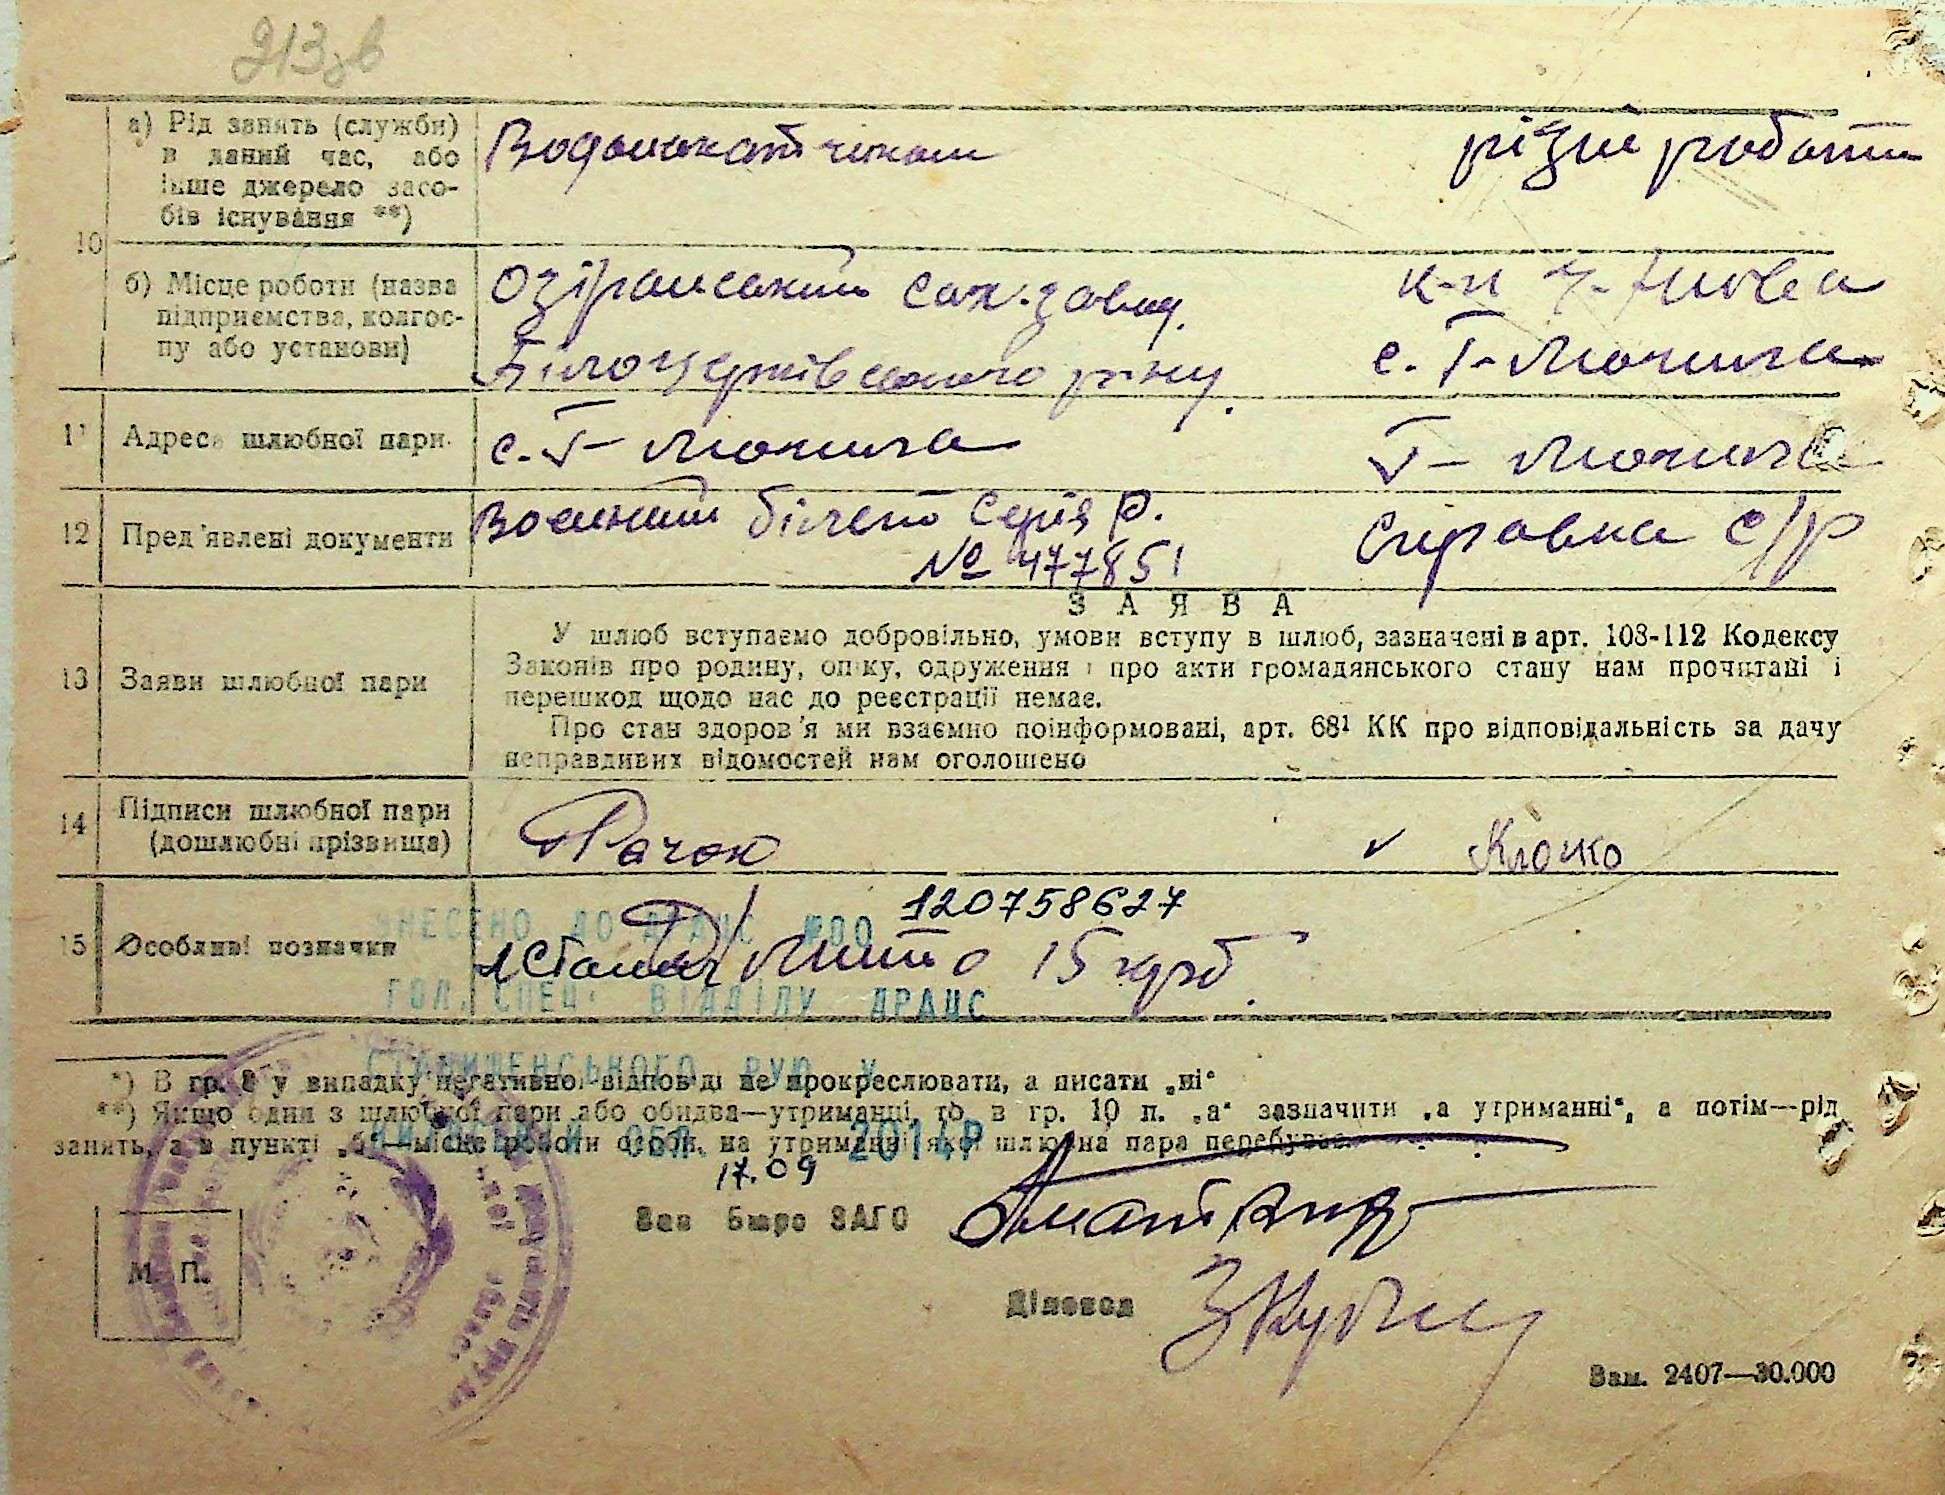 213 зв
а) Рід занять (служби) в даний час, або інше джерело засобів існування **)
Водокаччиком
різні роботи
10
б) Місце роботи (назва підприємства, колгоспу або установи)
Озірянський сах. завод
Білоцерківського р-ну.
к-п
с. Г-Могила
11
Адреса шлюбної пари.
с. Г-Могила
Г-Могила
12
Пред'явлені документи
Воєнний білет Серія Р.
№ 477851
Справка С/Р
ЗАЯВА
13
Заяви шлюбної пари
У шлюб вступаємо добровільно, умови вступу в шлюб, зазначені в арт. 108-112 Кодексу
Законів про родину, опіку, одруження і про акти громадянського стану нам прочитані і
перешкод щодо нас до реєстрації немає.
Про стан здоров'я ми взаємно поінформовані, арт. 68¹ КК про відповідальність за дачу
неправдивих відомостей нам оголошено
14
Підписи шлюбної пари
(дошлюбні прізвища)
Рачок
✓ Клочко
120758627
ВНЕСЕНО ДО ДРАЦС
15
Особливі позначки
Мито 15 крб.
ГОЛ. СПЕЦ. ВІДДІЛУ ДРАЦС
СТАВИЩЕНСЬКОГО РУЮ У
*) В гр. 8 у випадку негативної відповіді не прокреслювати, а писати „ні“
**) Якщо один з шлюбної пари або обидва—утриманці, то в гр. 10 п. „а“ зазначити „а утриманні“, а потім—рід
занять, а в пункті „б“—місце роботи особи, на утриманні якої шлюбна пара перебуває.
КИЇВСЬКІЙ ОБЛ. 2014Р
17.09
Зав Бюро ЗАГС
М. П.
Діловод
Зам. 2407—30.000